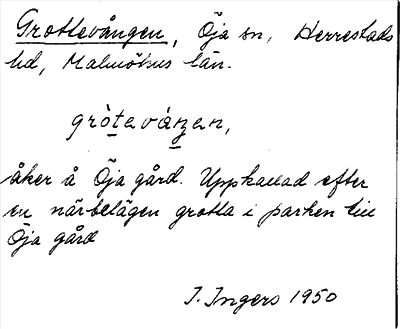 Grottevången, Öja sn, Herrestads
hd, Malmöhus län.
gròteváŋen,
åker å Öja gård. Uppkallad efter
en närbelägen grotta i parken till
Öja gård
I. Ingers 1950